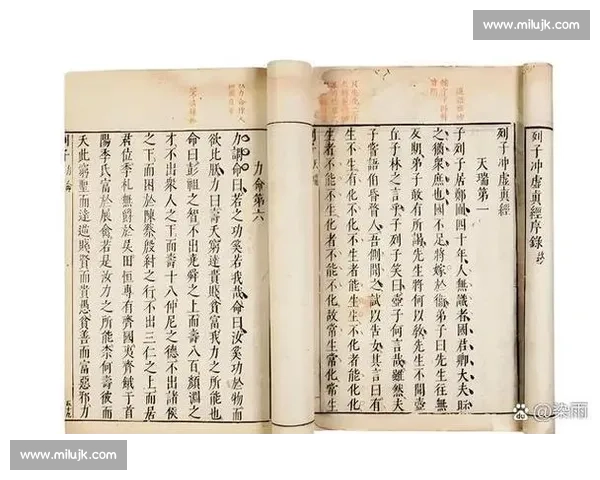 www.milujk.com
列子冲虛真經序錄
列子冲虛真經
天瑞第一
子列子居鄭圃四十年人無識者國君卿大夫眎
之猶衆庶也國不足將嫁於衞弟子曰先生往無
反期弟子敢有所謁先生將何以教先生不聞壺
丘子林之言乎子列子笑曰壺子何言哉雖然夫
子嘗語伯昏瞀人吾側聞之試以告女其言曰有
生不生有化不化不生者能生生不化者能化化
生者不能不生化者不能不化故常生常化常生
列子 天瑞
力命第六
力謂命曰若之功奚若我哉命曰汝奚功於物而
欲比朕力曰壽夭窮達貴賤貧富我力之所能也
命曰彭祖之智不出堯舜之上而壽八百顏淵之
才不出衆人之下而壽十八仲尼之德不出諸侯
之下而困於陳蔡殷紂之行不出三仁之上而居
君位季札無爵於吳田恒專有齊國夷齊餓于首
陽季氏富於展禽若是汝力之所能柰何壽彼而
夭此窮聖而達逆賤賢而貴愚貧善而富惡邪力
列子
@染雨
www.milujk.com